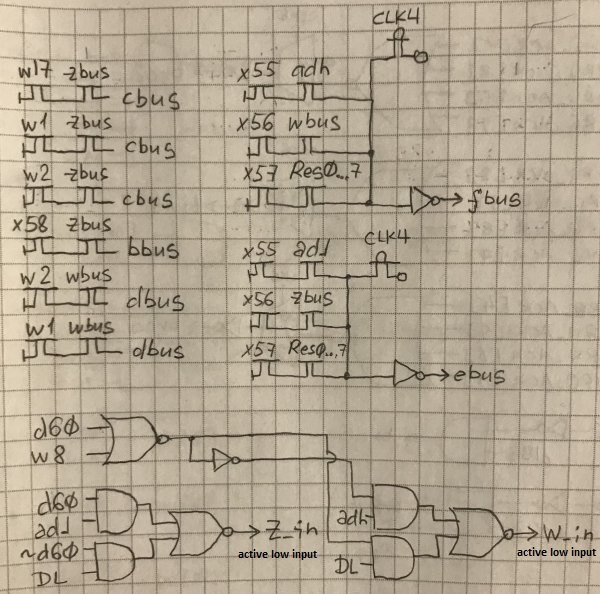 CLK4
w17 -zbus
cbus
w1 -zbus
cbus
w2 -zbus
cbus
x58 zbus
bbus
w2 wbus
dbus
w1 wbus
dbus
x55 adh
x56 wbus
x57 ResØ...7
fbus
CLK4
x55 adl
x56 zbus
x57 ResØ...7
ebus
d6Ø
w8
d6Ø
adl
~d6Ø
DL
Z_in
active low input
adh
DL
W_in
active low input